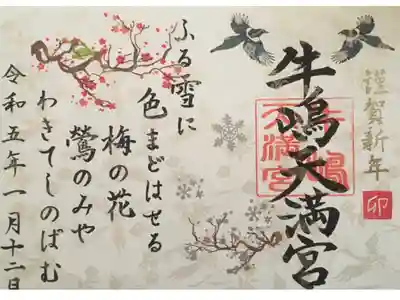 謹賀新年
卯
牛嶋天満宮
牛嶋天満宮
ふる雪に
色まどはせる
梅の花
鶯のみや
わきてしのばむ
令和五年一月十二日